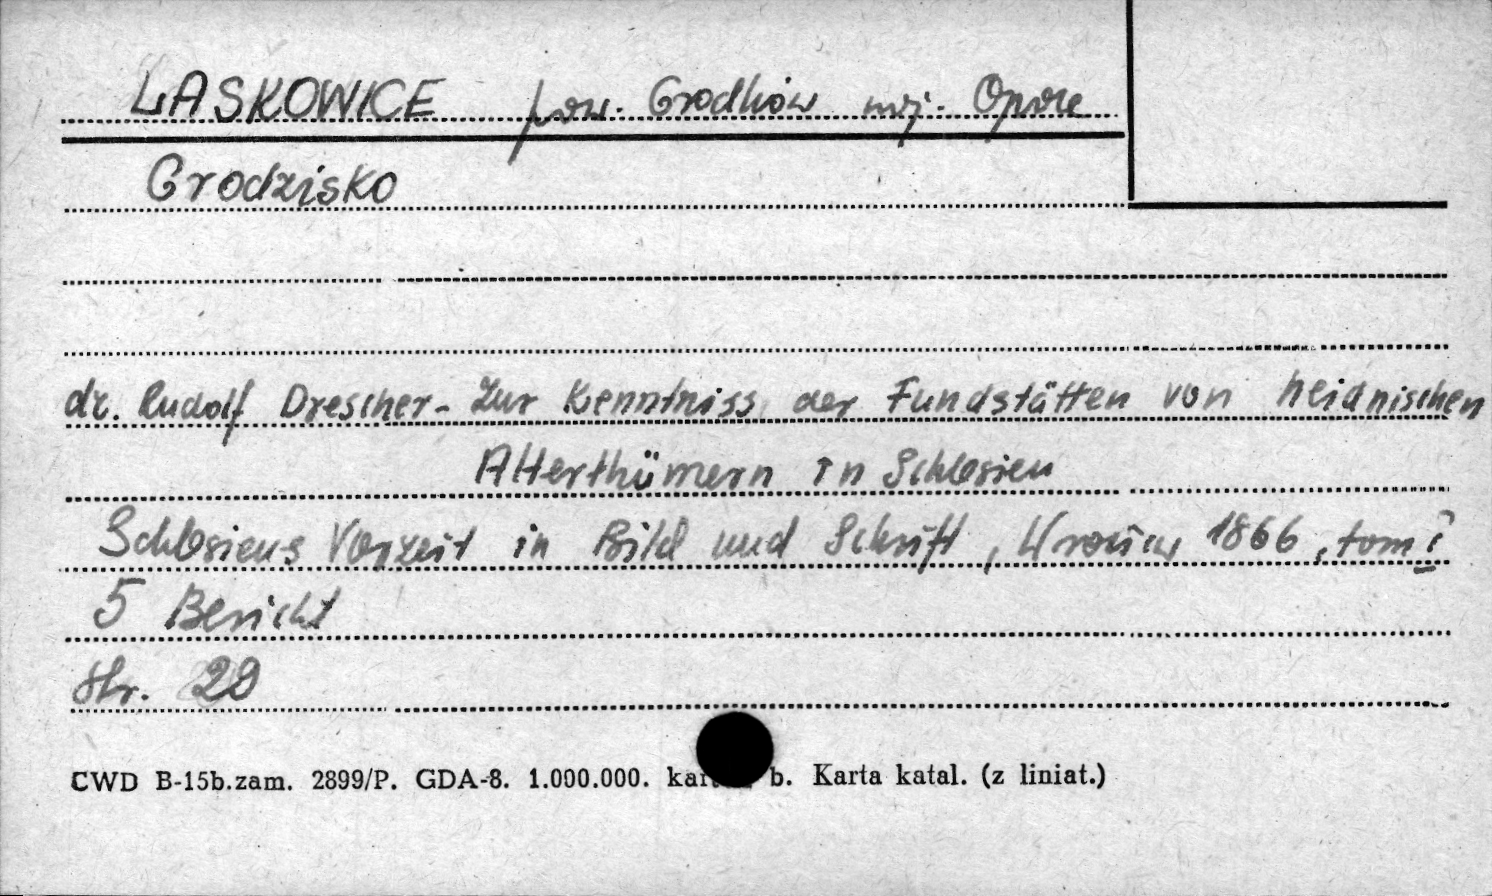 LASKOWICE pow. Grodków woj. Opole
Grodzisko
dr. Rudolf Drescher - Zur Kenntniss der Fundstätten von heidnischen
Alterthümern in Schlesien
Schlesiens Vorzeit in Bild und Schrift, Wrocław 1866, tom I
5 Bericht
Str. 29
CWD B-15b.zam. 2899/P. GDA-8. 1.000.000. b. Karta katal. (z liniat.)